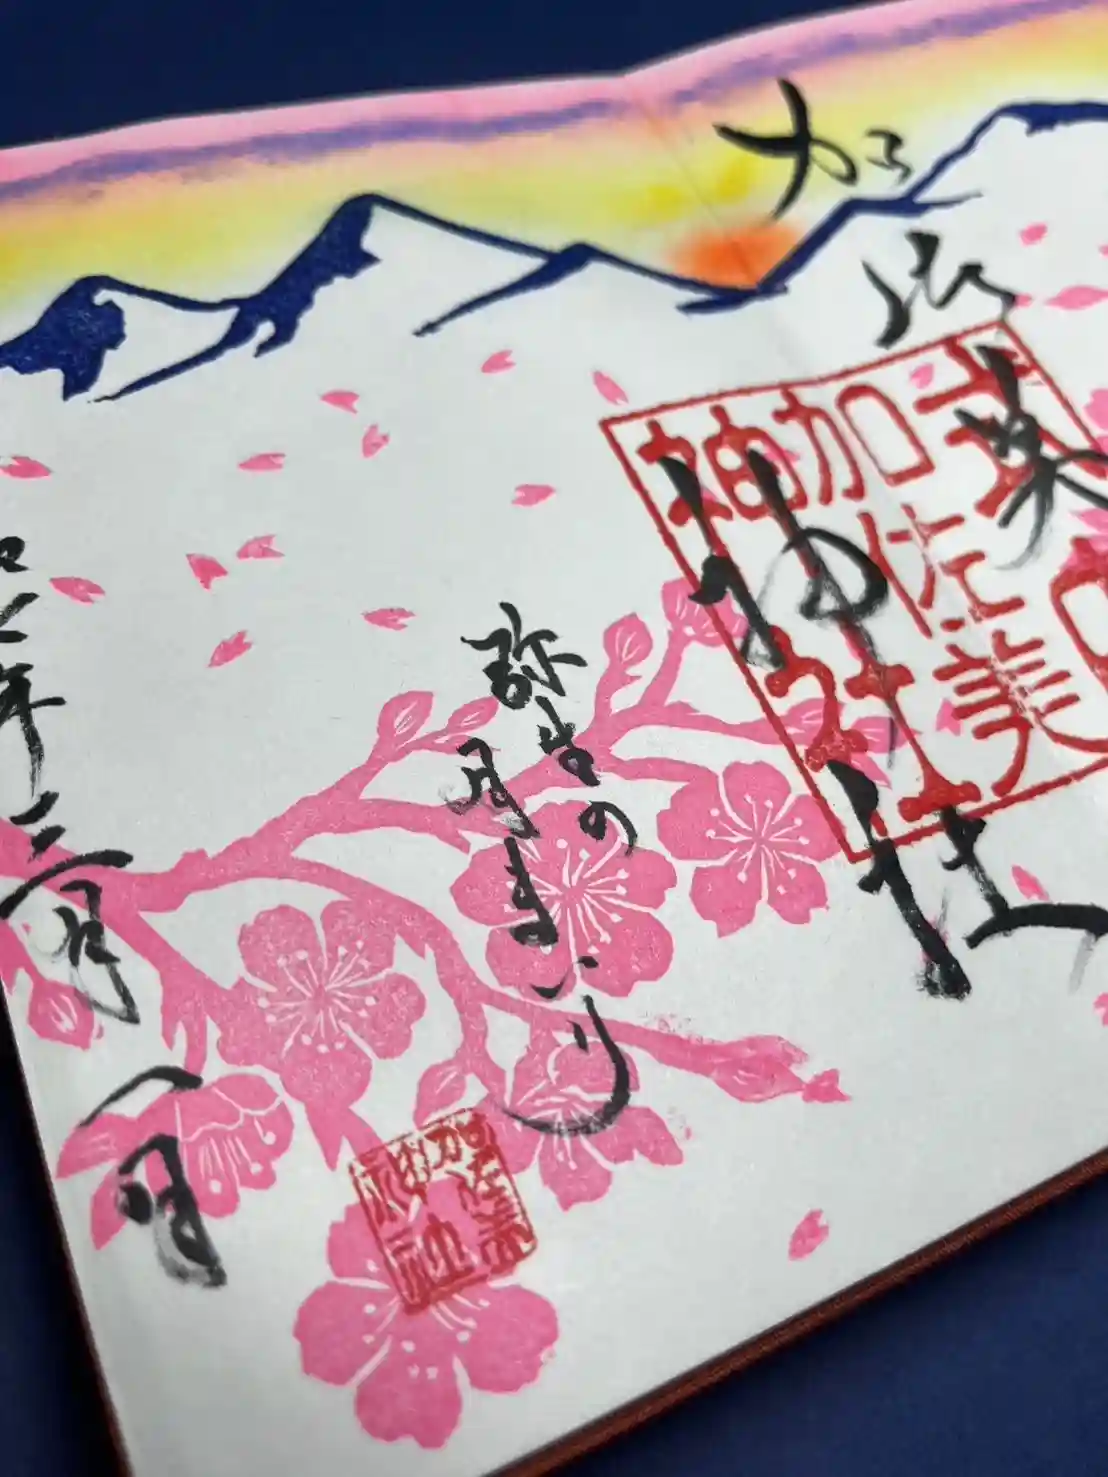 加佐美神社
式内
加佐美
神社
弥生の
月まいり
年三月一日
加佐美
神社